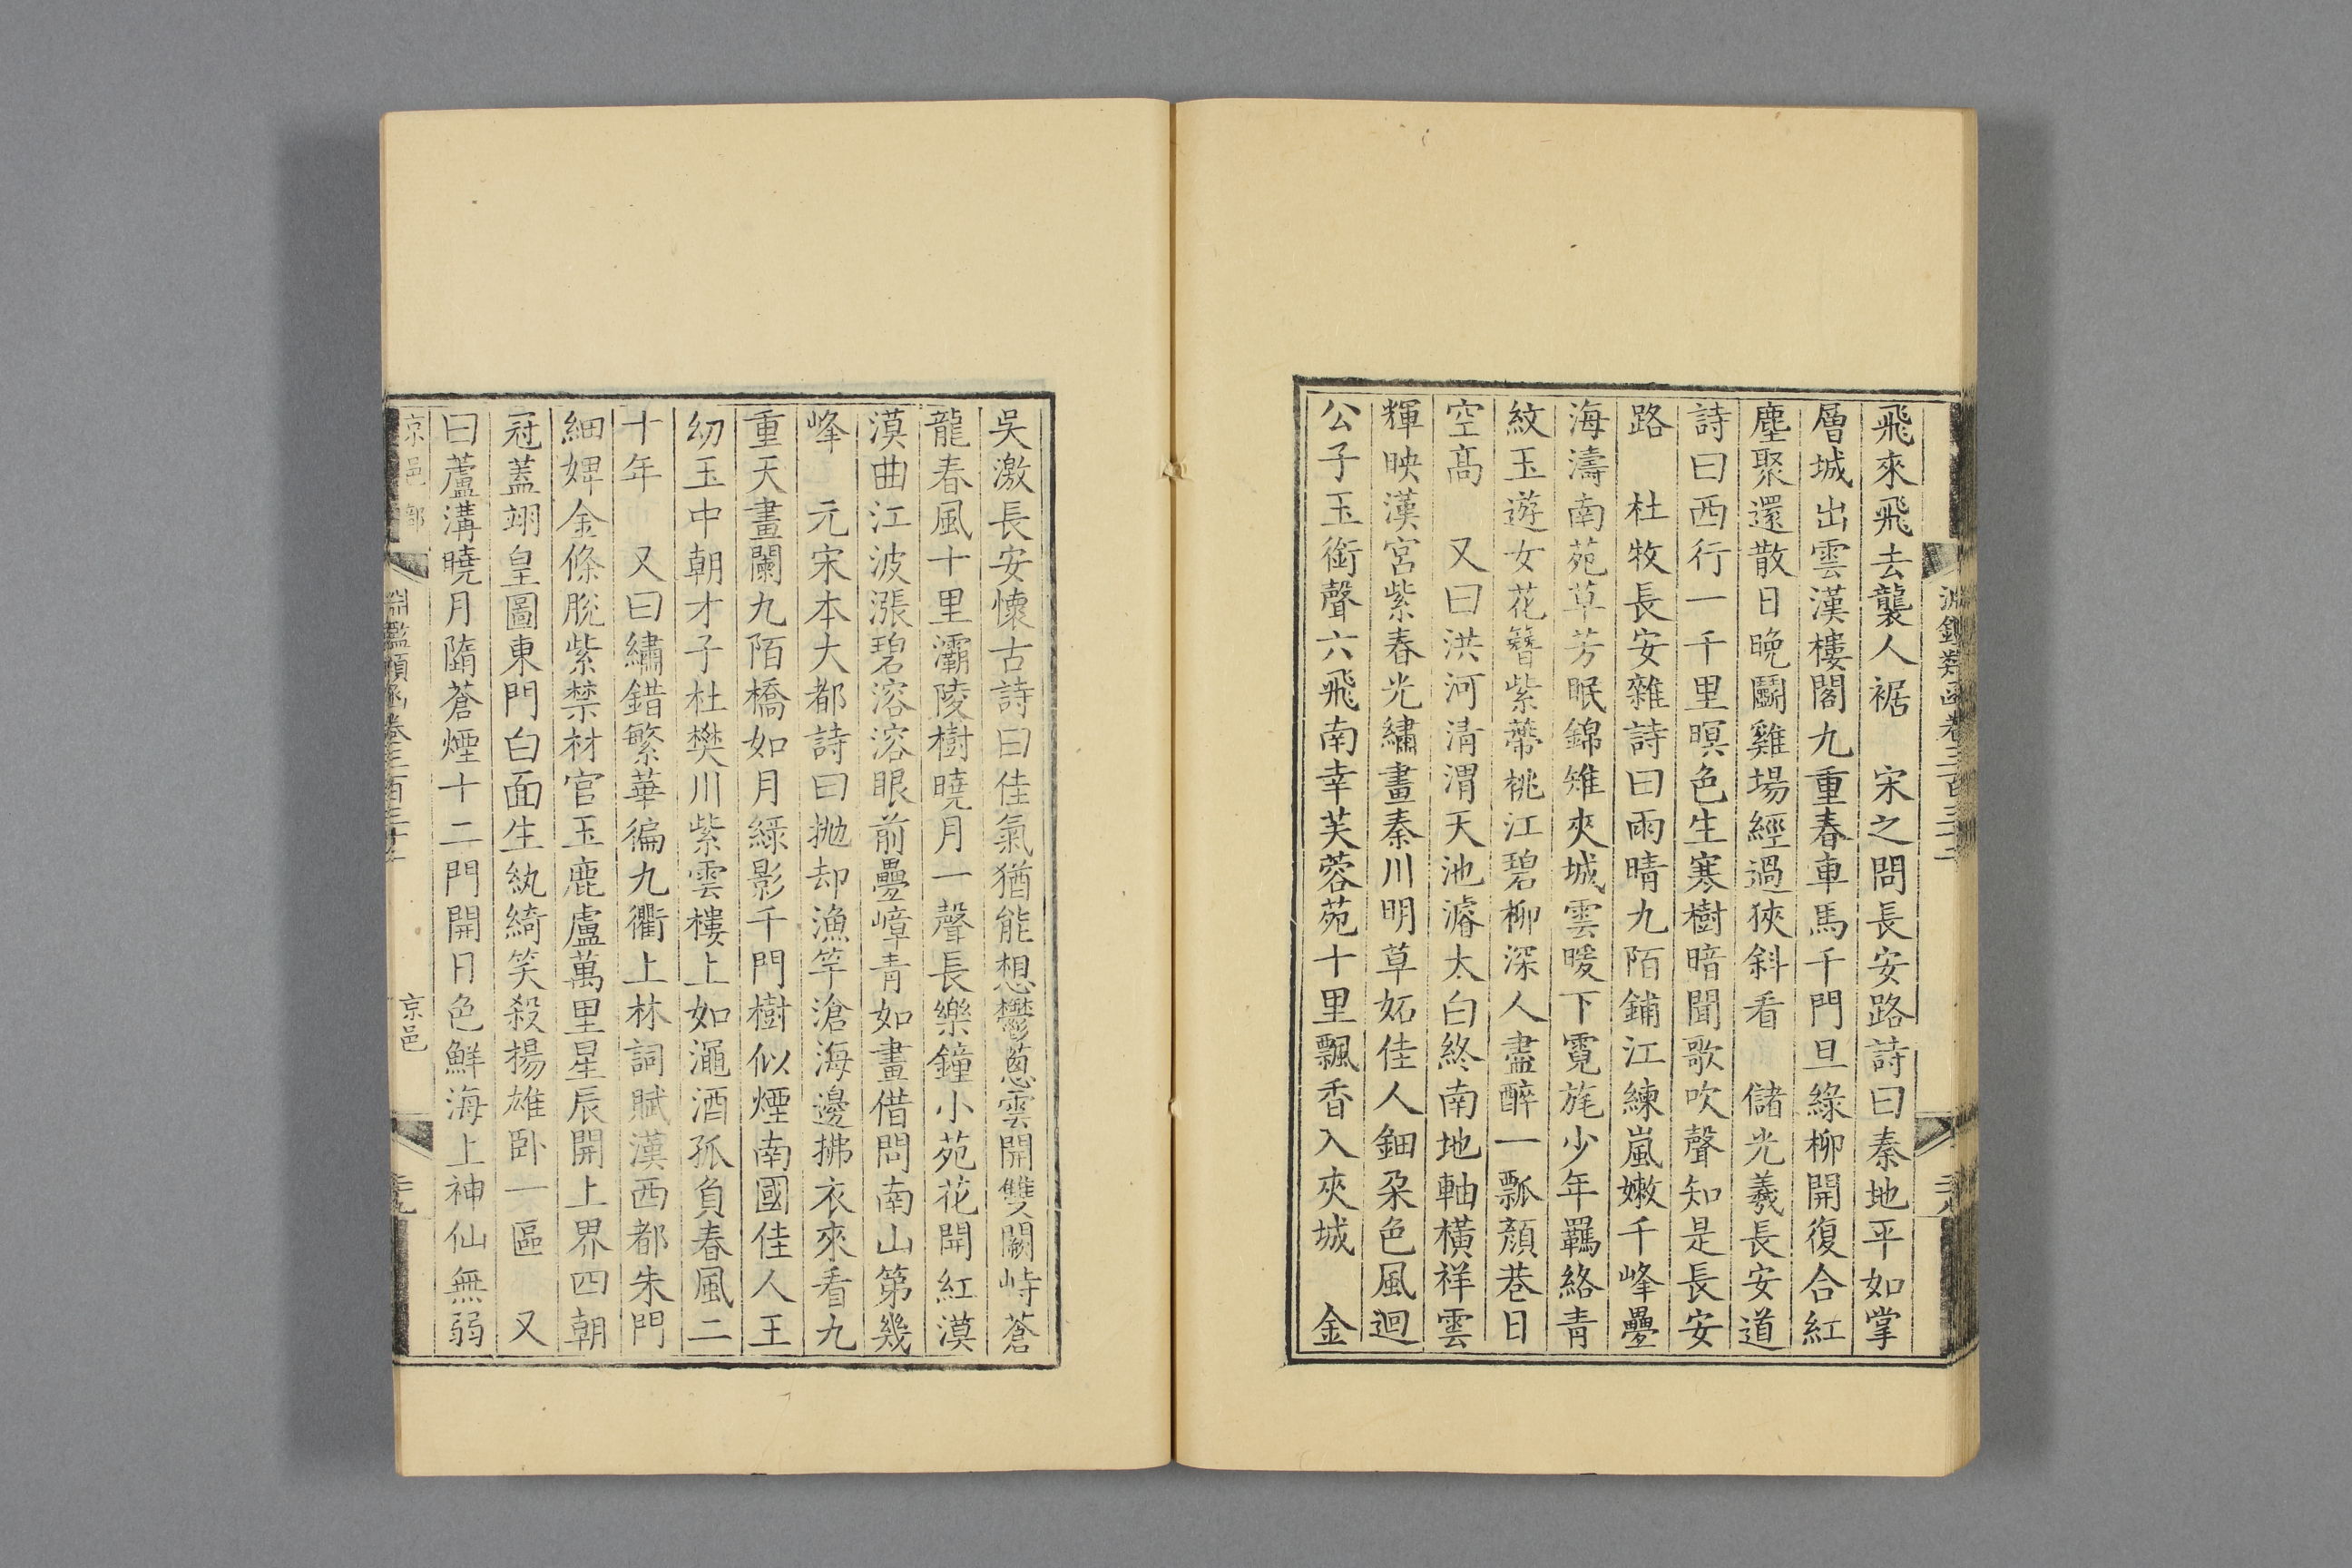 飛來飛去襲人裾　宋之問長安路詩曰秦地平如掌
層城出雲漢樓閣九重春車馬千門旦綠柳開復合紅
塵聚還散日晚鬭雞場經過狹斜看　儲光羲長安道
詩曰西行一千里暝色生寒樹暗聞歌吹聲知是長安
路　杜牧長安雜詩曰雨晴九陌鋪江練嵐嫩千峰疊
海濤南苑草芳眠錦雉夾城雲暖下霓旄少年羈絡青
紋玉遊女花簪紫蔕桃江碧柳深人盡醉一瓢顏巷日
空高　又曰洪河清渭天池濬太白終南地軸橫祥雲
輝映漢宮紫春光繡畫秦川明草妬佳人鈿朵色風迴
公子玉銜聲六飛南幸芙蓉苑十里飄香入夾城　金
吳激長安懷古詩曰佳氣猶能想鬱蔥雲開雙闕峙蒼
龍春風十里灞陵樹曉月一聲長樂鐘小苑花開紅漠
漠曲江波漲碧溶溶眼前疊嶂青如畫借問南山第幾
峰　元宋本大都詩曰拋却漁竿滄海邊拂衣來看九
重天畫闌九陌橋如月綠影千門樹似煙南國佳人王
幼玉中朝才子杜樊川紫雲樓上如澠酒孤負春風二
十年　又曰繡錯繁華徧九衢上林詞賦漢西都朱門
細婢金條脫紫禁材官玉鹿盧萬里星辰開上界四朝
冠蓋翊皇圖東門白面生紈綺笑殺揚雄臥一區　又
曰蘆溝曉月隋蒼煙十二門開日色鮮海上神仙無弱
淵鑑類函卷三百三十
京邑
三十九